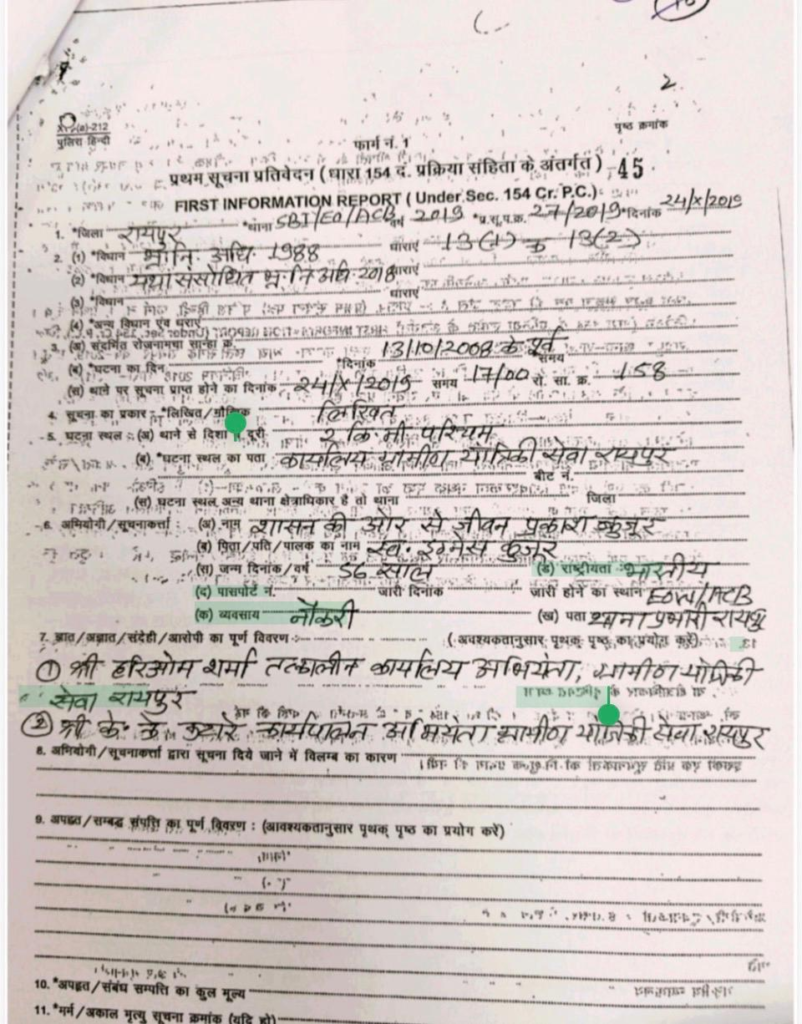 2
XI-(a)-212
पुलिस हिन्दी
पृष्ठ क्रमांक
फार्म नं. 1
प्रथम सूचना प्रतिवेदन (धारा 154 द. प्रक्रिया संहिता के अंतर्गत) -45
FIRST INFORMATION REPORT (Under Sec. 154 Cr. P.C.)
1. *जिला रायपुर *थाना EO/ACB वर्ष 2019 *प्र.सू.प.क्र. 27/2019 *दिनांक 24/X/2019
2. (1) *विधान भ्र.नि. अधि. 1988 धाराएं 13(1) क 13(2)
(2) *विधान यथा संसोधित भ्र. नि अधि 2018 धाराएं
(3) *विधान धाराएं
(4) *अन्य विधान एंव धाराएं
3. (अ) संदर्भित रोजनामचा सान्हा क्र.
(ब) *घटना का दिन *दिनांक 13/10/2008 के पूर्व समय
(स) थाने पर सूचना प्राप्त होने का दिनांक 24/X/2019 समय 17/00 रो. सा. क्र. 158
4. सूचना का प्रकार : *लिखित/मौखिक लिखित
5. घटना स्थल : (अ) थाने से दिशा व दूरी 2 कि.मी पश्चिम
(ब) *घटना स्थल का पता कार्यालय ग्रामीण यांत्रिकी सेवा रायपुर
बीट नं.
(स) घटना स्थल अन्य थाना क्षेत्राधिकार है तो थाना जिला
6. अभियोगी/सूचनाकर्त्ता : (अ) नाम शासन की ओर से जीवन प्रकाश कुजूर
(ब) पिता/पति/पालक का नाम स्व. इग्नेस कुजूर
(स) जन्म दिनांक/वर्ष 56 साल (ड) राष्ट्रीयता भारतीय
(द) पासपोर्ट नं. जारी दिनांक जारी होने का स्थान EOW/ACB
(क) व्यवसाय नौकरी (ख) पता थाना प्रभारी रायपुर
7. ज्ञात/अज्ञात/संदेही/आरोपी का पूर्ण विवरण :- (अवश्यकतानुसार पृथक् पृष्ठ का प्रयोग करें)
① श्री हरिओम शर्मा तत्कालीन कार्यालय अभियंता, ग्रामीण यांत्रिकी
सेवा रायपुर
② श्री के. के. कार्यपालन अभियंता ग्रामीण यांत्रिकी सेवा रायपुर
8. अभियोगी/सूचनाकर्त्ता द्वारा सूचना दिये जाने में विलम्ब का कारण
9. अपहृत/सम्बद्ध संपत्ति का पूर्ण विवरण : (आवश्यकतानुसार पृथक् पृष्ठ का प्रयोग करें)
10. *अपहृत/संबंध सम्पत्ति का कुल मूल्य
11. *मर्ग/अकाल मृत्यु सूचना क्रमांक (यदि हो)